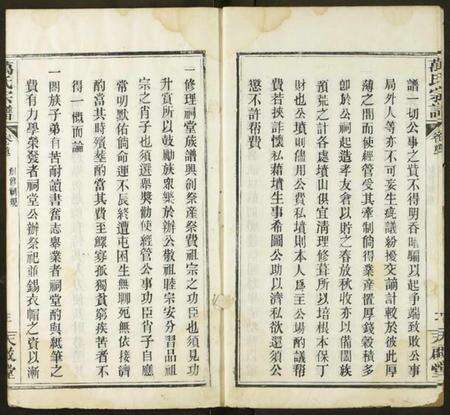 萬氏宗譜
卷
天啟堂
譜一切公事之費不得明吞暗騙以起爭端致敗公事
局外人等亦不可妄生疑議紛擾交謫計較於彼此厚
薄之間而使經管受其牽制倘得業產置厚錢穀積多
卽於公祠起造孝友倉以貯之春放秋收亦以備闔族
預荒之計各處墳山俱宜清理修葺所以培根本保丁
財也公墳則備用公費私墳則本人為主公場酌議幫
費若挾詐懷私藉墳生事希圖公助以濟私欲還須公
懲不許幫費
一修理祠堂族譜興創祭產祭費祖宗之功臣也須見功
升賞所以鼓勵族衆樂於辦公敬祖睦宗安分習品祖
宗之肖子也須選舉獎勸使經管公事功臣肖子自勵
常明默佑倘命運不辰終遭屯困生無聊死無依接濟
酌當其時殯塟酌當其費至鰥寡孤獨貧窮疾苦者不
得一慨而論
一闔族子弟有苦耐讀書奮志舉業者祠堂酌與紙筆之
費有力學榮發者祠堂公辦祭祀並錫衣帽之資以漸
萬氏宗譜
卷
創修祠規
天啟堂